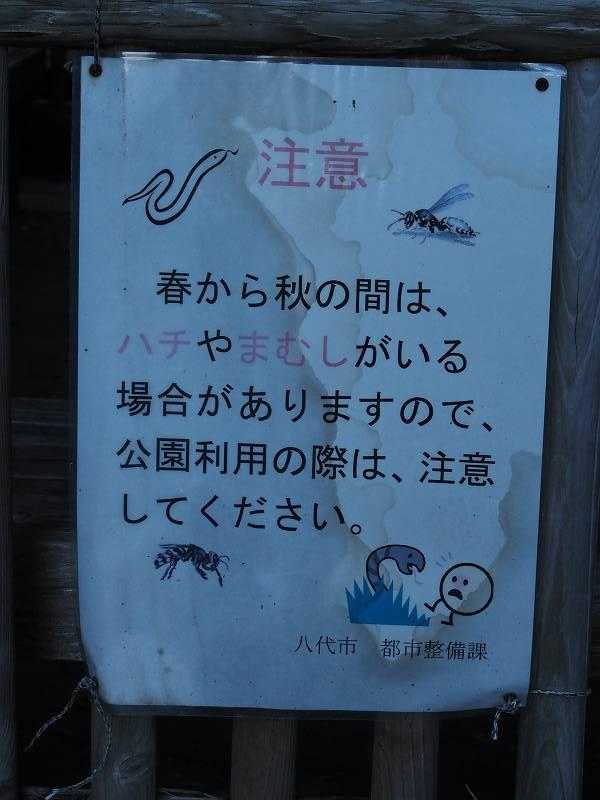 注意
春から秋の間は、
ハチやまむしがいる
場合がありますので、
公園利用の際は、注意
してください。
八代市　都市整備課